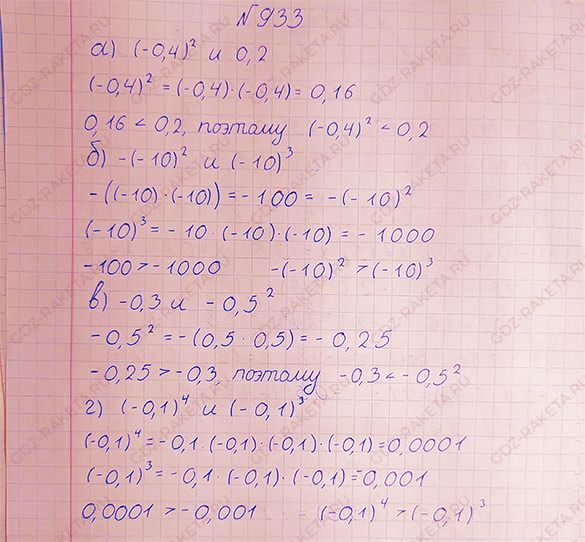 №933
а) (-0,4)² и 0,2
(-0,4)² = (-0,4)·(-0,4) = 0,16
0,16 < 0,2, поэтому (-0,4)² < 0,2
б) -(-10)² и (-10)³
-((-10)·(-10)) = -100 = -(-10)²
(-10)³ = -10·(-10)·(-10) = -1000
-100 > -1000 -(-10)² > (-10)³
в) -0,3 и -0,5²
-0,5² = -(0,5·0,5) = -0,25
-0,25 > -0,3, поэтому -0,3 < -0,5²
г) (-0,1)⁴ и (-0,1)³
(-0,1)⁴ = -0,1·(-0,1)·(-0,1)·(-0,1) = 0,0001
(-0,1)³ = -0,1·(-0,1)·(-0,1) = -0,001
0,0001 > -0,001 (-0,1)⁴ > (-0,1)³
GDZ-RAKETA.RU